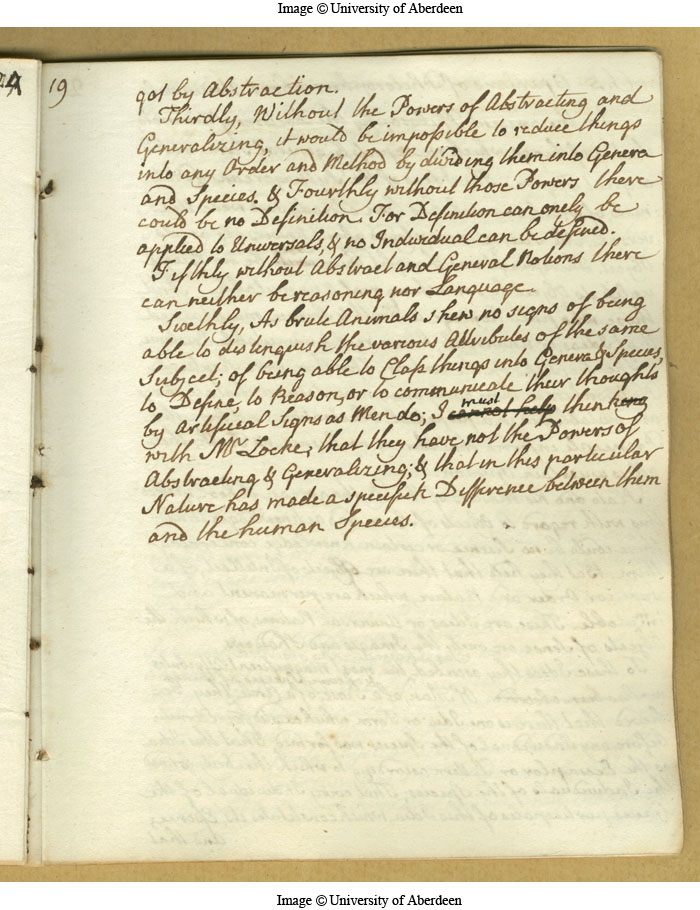 Image © University of Aberdeen
19
got by Abstraction.
Thirdly, Without the Powers of Abstracting and
Generalizing, it would be impossible to reduce things
into any Order and Method by dividing them into Genera
and Species. & Fourthly without those Powers there
could be no Definition. For Definition can onely be
applied to Universals, & no Individual can be defined.
Fifthly without Abstract and General Notions there
can neither be reasoning nor Language.
Sixthly, As brute Animals shew no signs of being
able to distinguish the various Attributes of the same
Subject; of being able to Class things into Genera & Species,
to Define, to Reason, or to communicate their thoughts
by Artificial Signs as Men do; I must cannot help thinking
with Mr Locke, that they have not the Powers of
Abstracting & Generalizing; & that in this particular
Nature has made a specifick Difference between them
and the human Species.
Image © University of Aberdeen